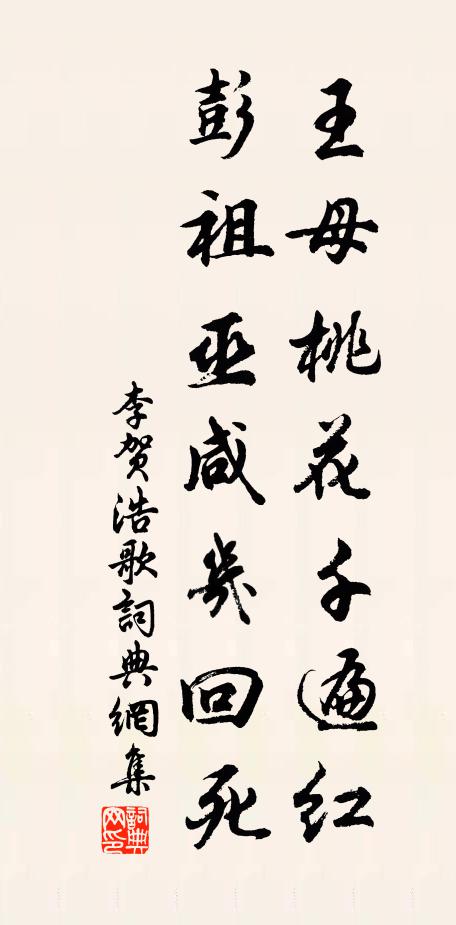 王母桃花千遍紅
彭祖巫咸幾回死
李賀浩歌詞典網集
詞典网印